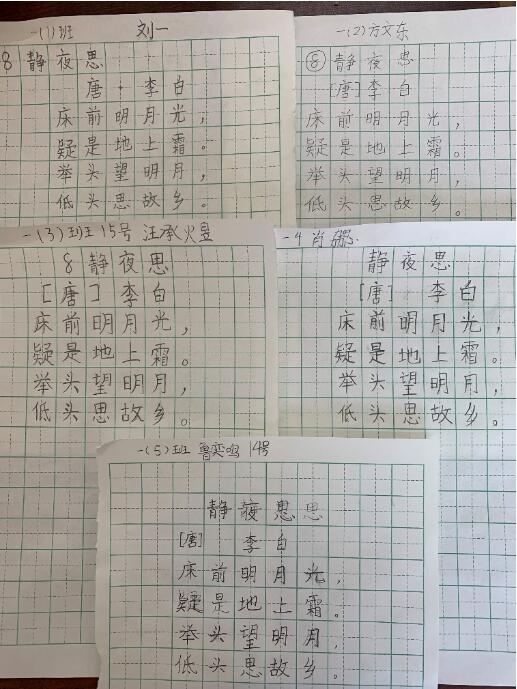 一(1)班 刘一
8 静夜思
唐·李白
床前明月光，
疑是地上霜。
举头望明月，
低头思故乡。
一(2)方文东
⑧静夜思
[唐]李白
床前明月光，
疑是地上霜。
举头望明月，
低头思故乡。
一(3)班班15号 汪承火昱
8 静夜思
[唐]李白
床前明月光，
疑是地上霜。
举头望明月，
低头思故乡。
一4 肖
静夜思
[唐] 李白
床前明月光，
疑是地上霜。
举头望明月，
低头思故乡。
一(5)班 鲁奕鸣 14号
静夜思思
[唐] 李白
床前明月光，
疑是地上霜。
举头望明月，
低头思故乡。